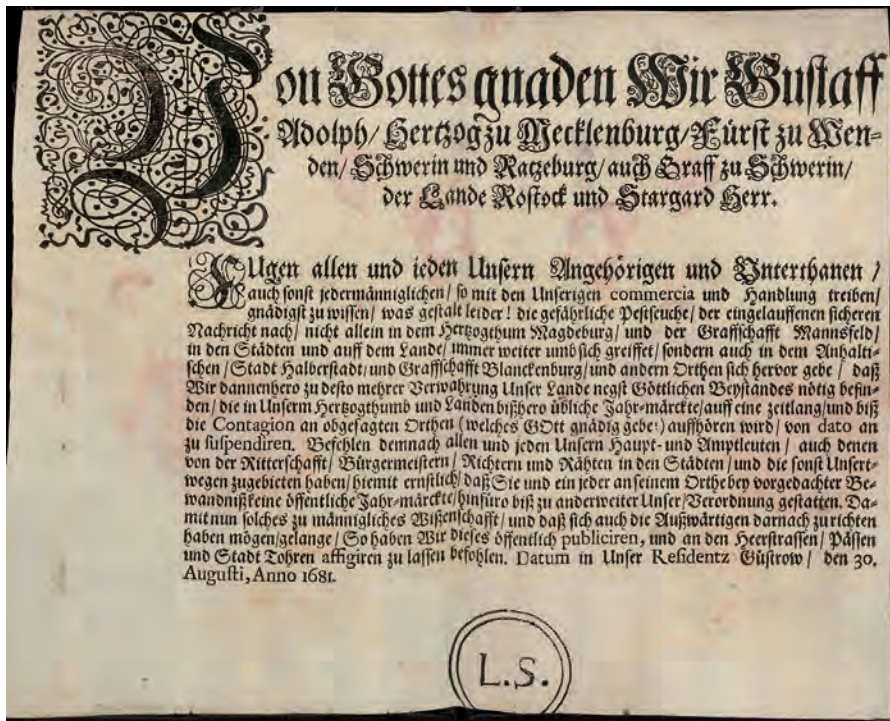 Von Gottes gnaden Wir Gustaff
Adolph/ Hertzog zu Mecklenburg/ Fürst zu Wen-
den/ Schwerin und Ratzeburg/ auch Graff zu Schwerin/
der Lande Rostock und Stargard Herr.
FUgen allen und ieden Unsern Angehörigen und Unterthanen /
auch sonst jedermänniglichen/ so mit den Unserigen commercia und Handlung treiben/
gnädigst zu wissen/ was gestalt leider! die gefährliche Pestseuche/ der eingelauffenen sicheren
Nachricht nach/ nicht allein in dem Hertzogthum Magdeburg/ und der Graffschafft Mannsfeld/
in den Städten und auff dem Lande/ immer weiter umb sich greiffet/ sondern auch in dem Anhalti-
schen/ Stadt Halberstadt/ und Graffschafft Blanckenburg/ und andern Orthen sich hervor gebe / daß
Wir dannenhero zu desto mehrer Verwahrung Unser Lande negst Göttlichen Beystandes nötig befin-
den/ die in Unserm Hertzogthumb und Landen bißhero übliche Jahr-märckte/ auff eine zeitlang/ und biß
die Contagion an obgesagten Orthen (welches GOtt gnädig gebe!) auffhören wird/ von dato an
zu suspendiren. Befehlen demnach allen und jeden Unsern Haupt- und Amptleuten / auch denen
von der Ritterschafft/ Bürgermeistern/ Richtern und Rähten in den Städten/ und die sonst Unsert-
wegen zugebieten haben/ hiemit ernstlich/ daß Sie und ein jeder an seinem Orthe bey vorgedachter Be-
wandniß keine öffentliche Jahr-märckte/ hinfüro biß zu anderweiter Unser/ Verordnung gestatten. Da-
mit nun solches zu männigliches Wißenschafft/ und daß sich auch die Außwärtigen darnach zu richten
haben mögen/ gelange/ So haben Wir dieses öffentlich publiciren, und an den Heerstrassen/ Pässen
und Stadt Tohren affigiren zu lassen befohlen. Datum in Unser Residentz Güstrow / den 30.
Augusti, Anno 1681.
L.S.